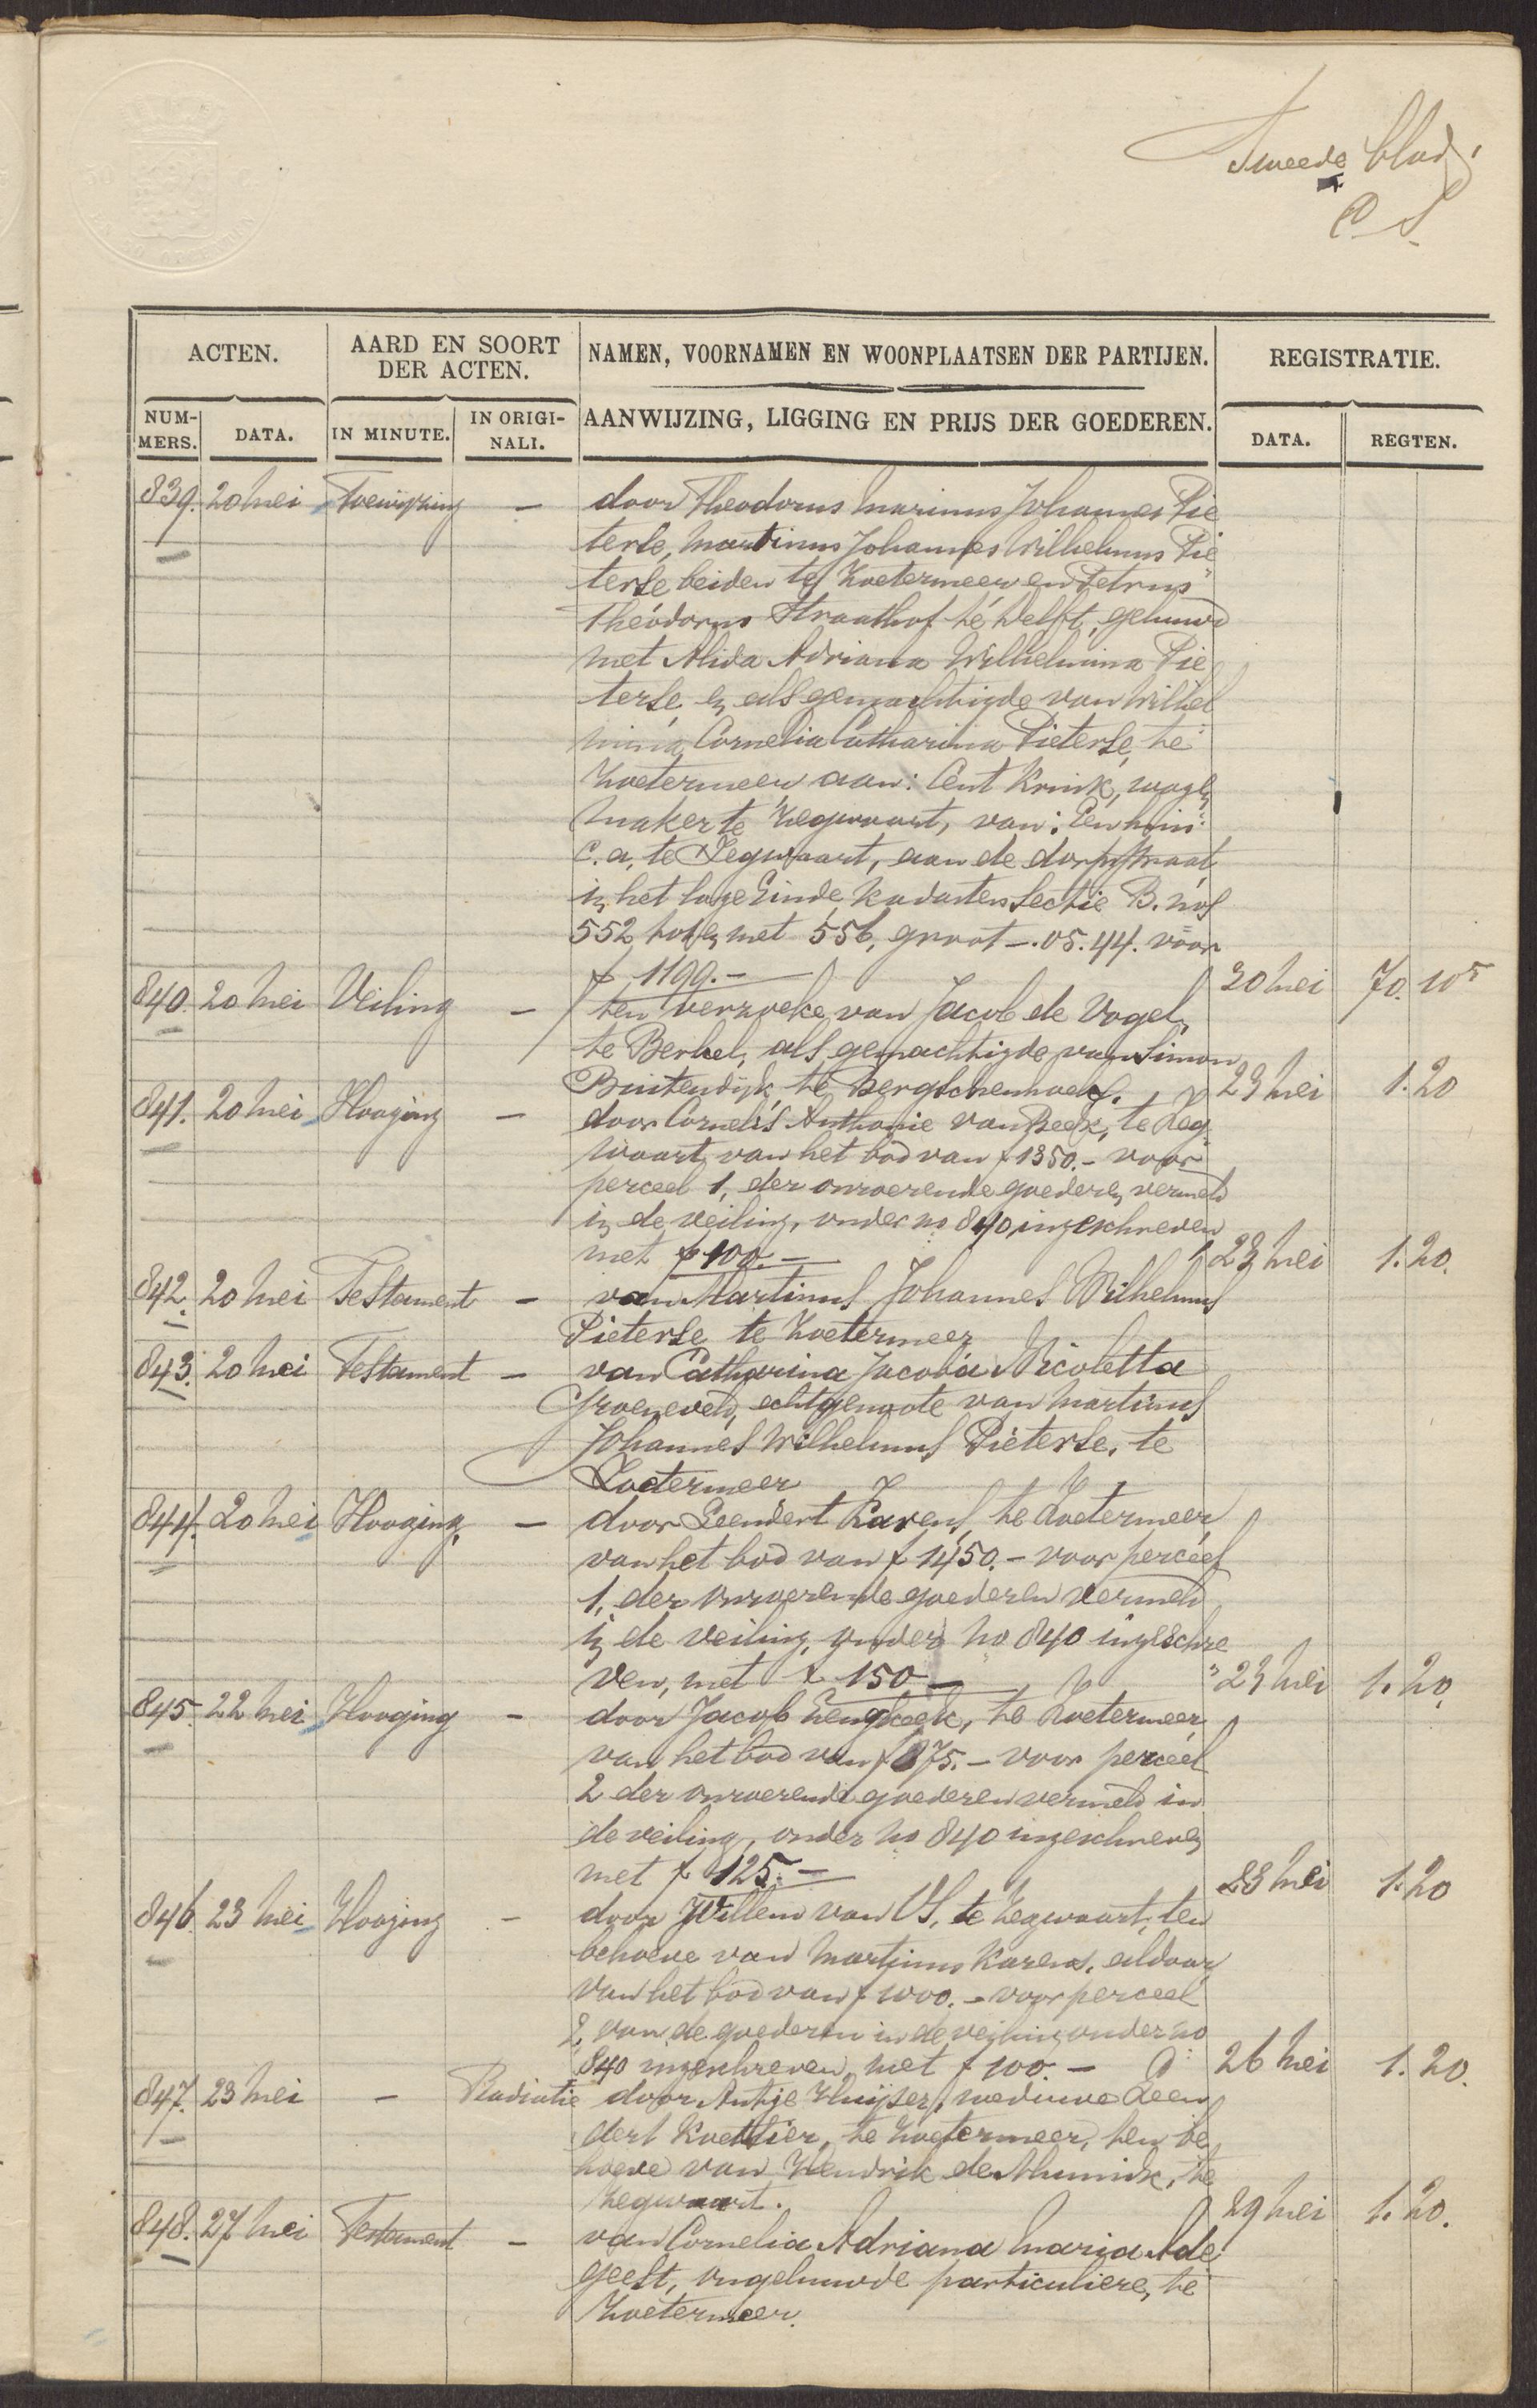 Tweede blad
C S
ACTEN.
AARD EN SOORT DER ACTEN.
NAMEN, VOORNAMEN EN WOONPLAATSEN DER PARTIJEN.
REGISTRATIE.
NUM-MERS.
DATA.
IN MINUTE.
IN ORIGI-NALI.
AANWIJZING, LIGGING EN PRIJS DER GOEDEREN.
DATA.
REGTEN.
839. 20 Mei Toewijzing — door Theodorus Marinus Johannes Pie
terse, Martinus Johannes Wilhelmus Pie
terse beiden te Zoetermeer en Petrus
Theodorus Straathof te Delft, gehuwd
met Alida Adriana Wilhelmina Pie
terse en als gemachtigde van Wilhel
mina Cornelia Catharina Pieterse, te
Zoetermeer aan: Cent Krink, wagen
maker te Zegwaart, van: Een huis
c.a. te Zegwaart, aan de dorpstraat
in het lage Einde, kadaster Sectie B. nos
552 tot en met 556, groot —.05.44. voor
f 1199.— 30 Mei 70. 10⁵
840. 20 Mei Veiling — ten verzoeke van Jacob de Vogel,
te Berkel, als gemachtigde van Simon
Buitendijk, te Bergschenhoek. 23 Mei 1.20
841. 20 Mei Hooging — door Cornelis Anthonie van Beek, te Zeg
waart, van het bod van f 1350.— voor
perceel 1, der onroerende goederen, vermeld
in de veiling, onder no 840, ingeschreven
met f 100.— 23 Mei 1.20.
842. 20 Mei Testament — van Martinus Johannes Wilhelmus
Pieterse te Zoetermeer
843. 20 Mei Testament — van Catharina Jacoba Nicoletta
Groeneveld, echtgenoote van Martinus
Johannes Wilhelmus Pieterse, te
Zoetermeer
844. 20 Mei Hooging. — door Leendert Karens, te Zoetermeer,
van het bod van f 1450.— voor perceel
1, der onroerende goederen vermeld
in de veiling, onder no 840 ingeschre
ven, met f 150— 23 Mei 1.20.
845. 22 Mei Hooging — door Jacob Hengskeek, te Zoetermeer,
van het bod van f 875.— voor perceel
2 der onroerende goederen vermeld in
de veiling, onder no 840 ingeschreven
met f 125.— 23 Mei 1.20
846. 23 Mei Hooging — door Willem van Os, te Zegwaart, ten
behoeve van Martinus Karens, aldaar
van het bod van f 1000.— voor perceel
2, van de goederen in de veiling onder no
840 ingeschreven, met f 100.— 26 Mei 1.20.
847. 23 Mei — Radiatie door Antje Huijser, weduwe Leen
dert Koettier, te Zoetermeer, ten be
hoeve van Hendrik de Munnik, te
Zegwaart. 29 Mei 1.20.
848. 27 Mei Testament — van Cornelia Adriana Maria Ade
geest, ongehuwde particuliere, te
Zoetermeer.